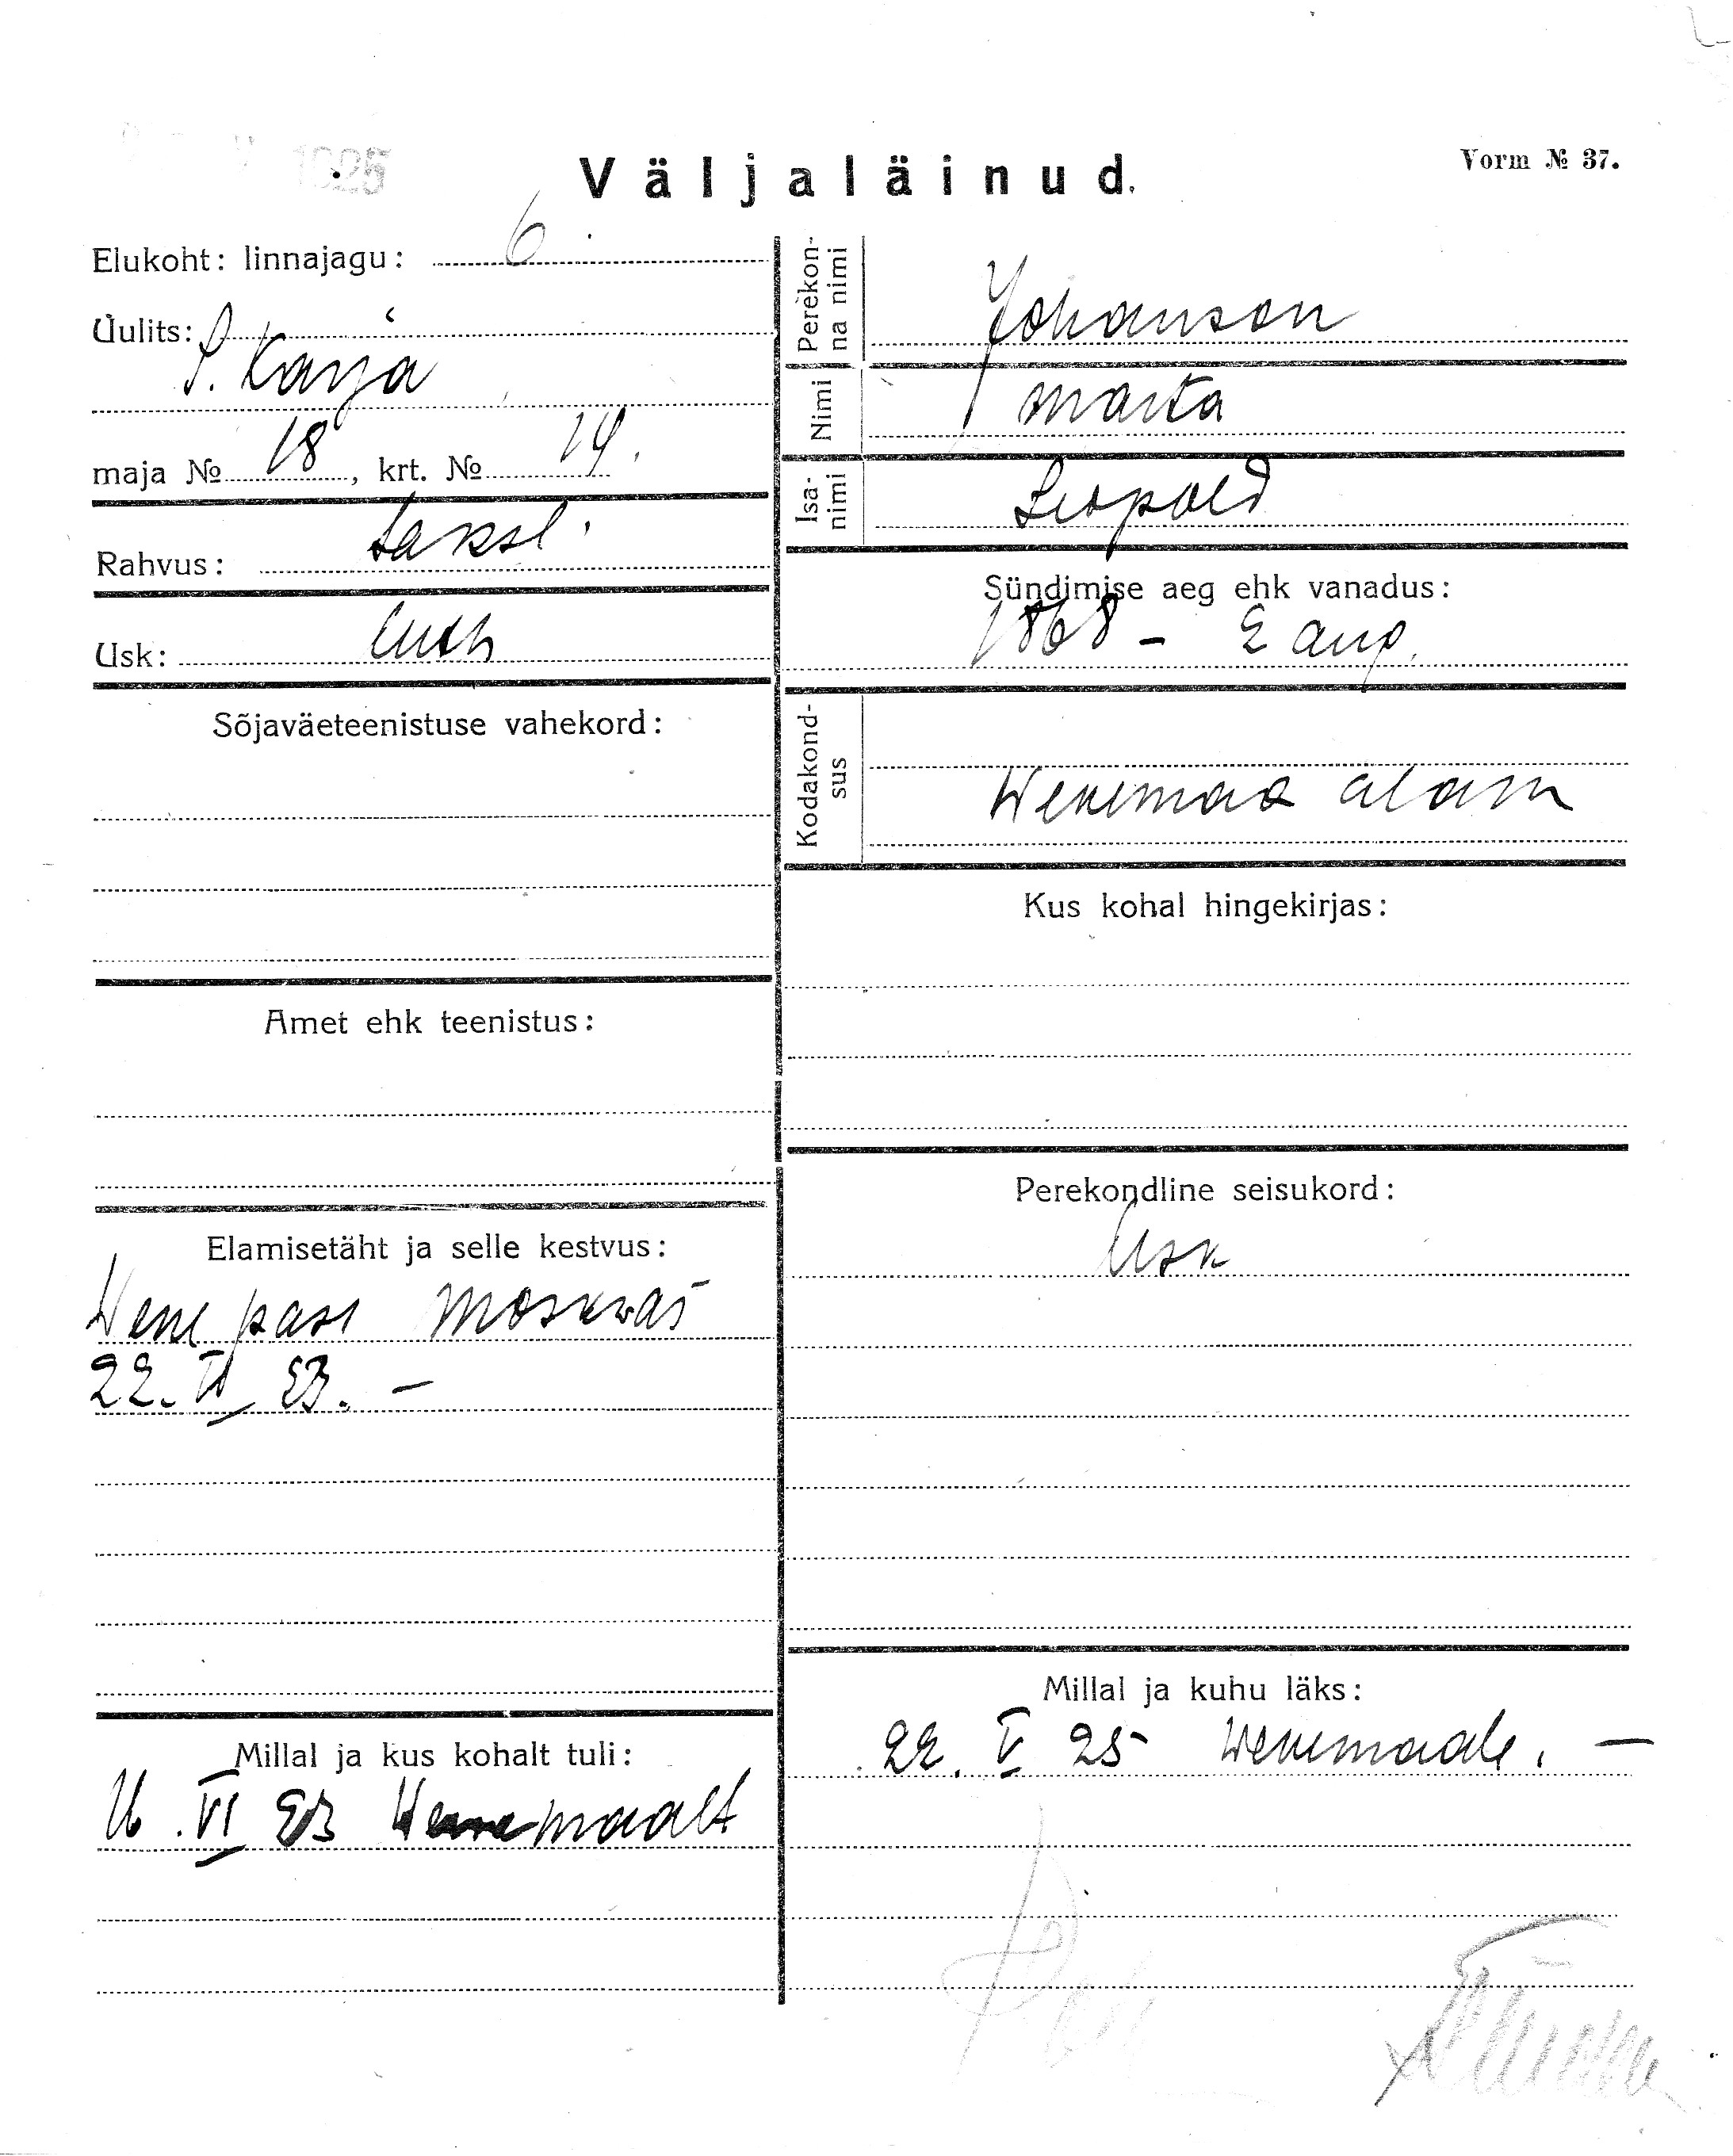 1925
Väljaläinud.
Vorm № 37.
Elukoht: linnajagu: 6
Uulits:
S. Karja
maja № 18, krt. № 14.
Rahvus: saksl.
Usk: luth
Sõjaväeteenistuse vahekord:
Amet ehk teenistus:
Elamisetäht ja selle kestvus:
Wene pass Moskwas
22. 23. —
Millal ja kus kohalt tuli:
VI 23 Wenemaalt
Perekonna nimi
Johanson
Nimi
Marta
Isanimi
Leopold
Sündimise aeg ehk vanadus:
1868 - 2 aug.
Kodakondsus
Wenemaa alam
Kus kohal hingekirjas:
Perekondline seisukord:
Lesk
Millal ja kuhu läks:
22. V 25 Wenemaale. —